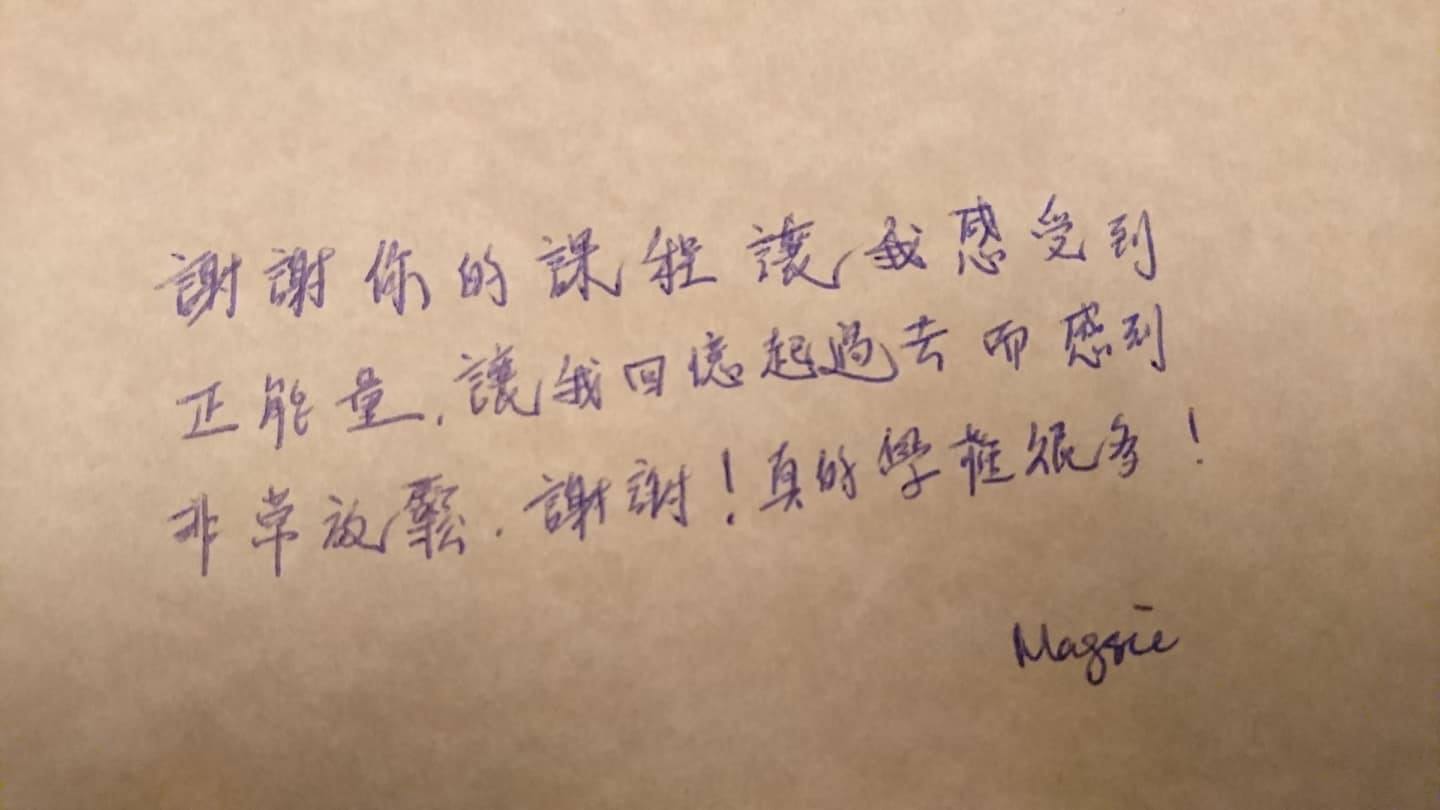 謝謝你的課程讓我感受到
正能量,讓我回憶起過去而感到
非常放鬆,謝謝!真的學確很多!
Maggie